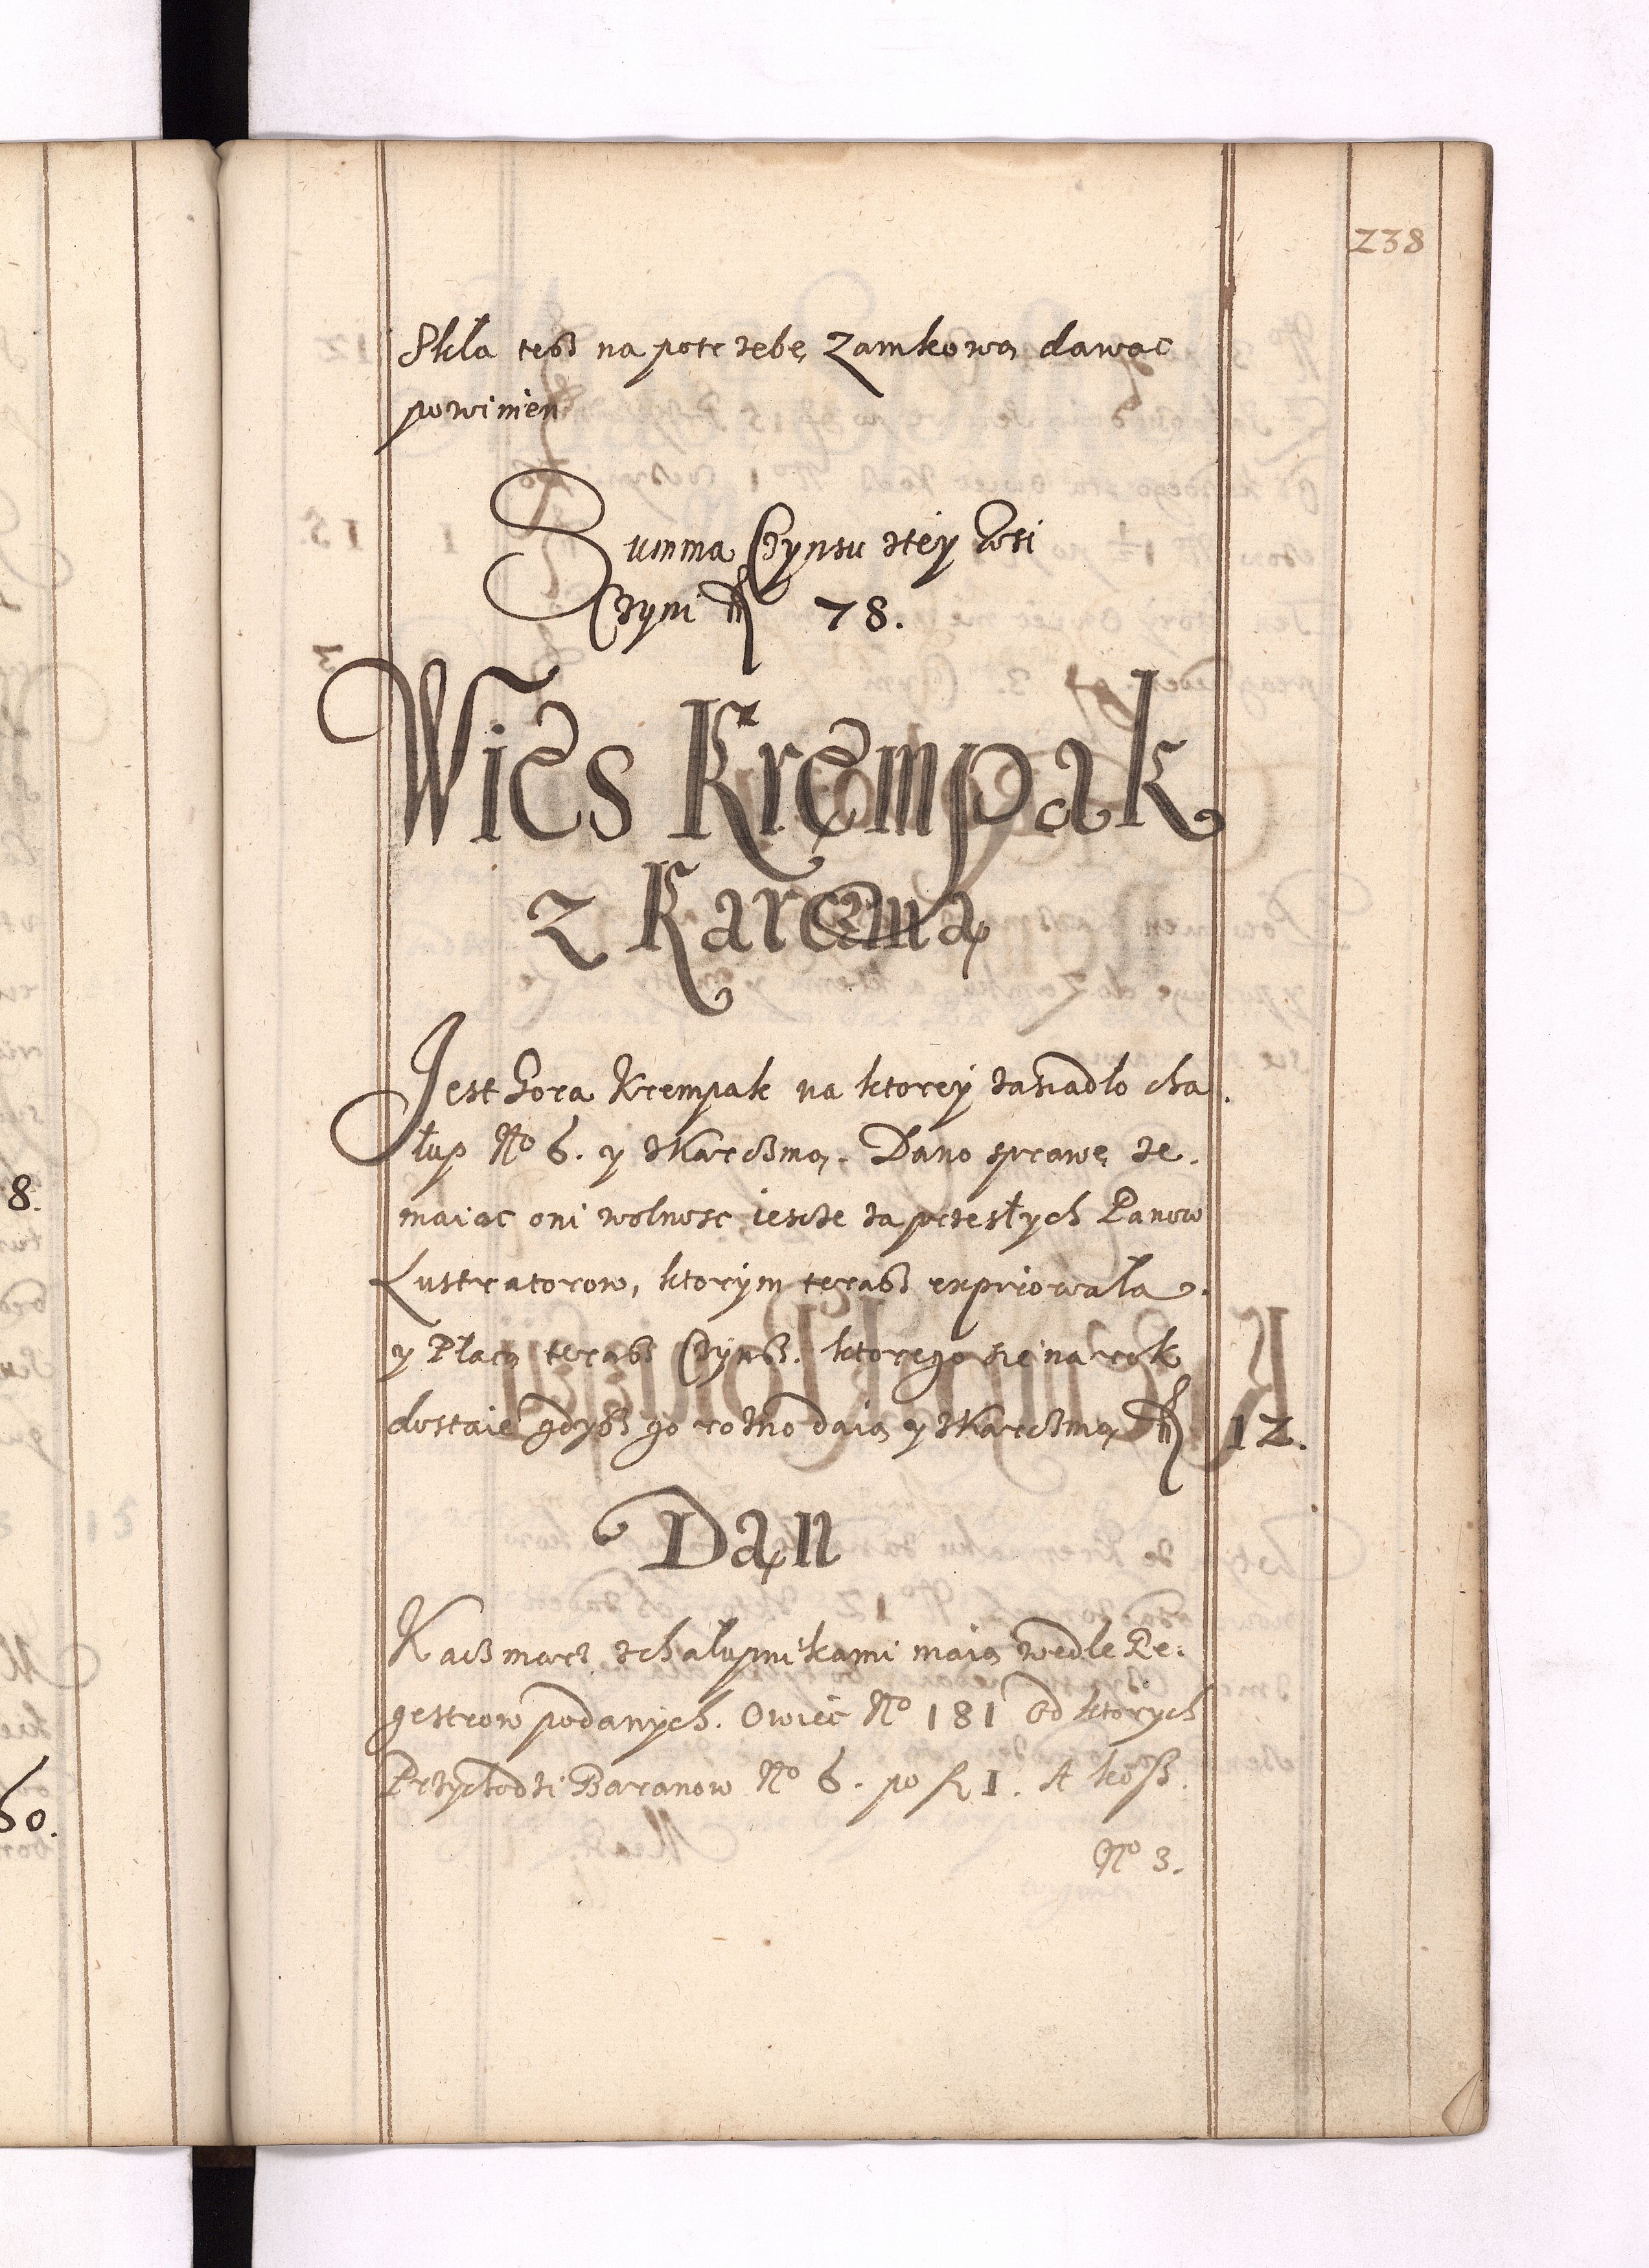 238
Skła tesz na potrzebę Zamkową dawac
powinien
Summa Czynsu ztey Wsi
Czyni fl 78.
Wies Krempak
z Karczmą
Jest Gora Krempak na ktorey zasiadło cha
łup No 6. y zKarczmą. Dano sprawę ze.
maiąc oni wolnosc iescze za przesłych Panow
Lustratorow, ktorym terasz expirowała.
y Płacą terasz Czynsz. ktorego się na rok
dostaie gdysz go rozno daią y zKarczmą fl 12.
Dan
Kaczmarz zchałupnikami maią wedle Re.
gestrow podanych. Owiec No 181 Od ktorych
Przychodzi Baranow No 6. po fl 1. A kosz.
No 3.
8.
60.